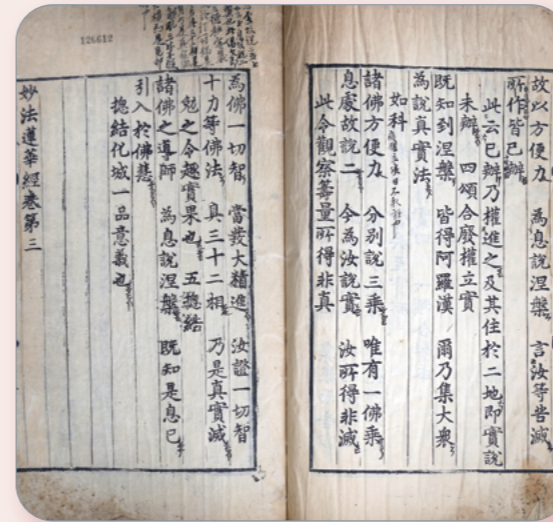 故以方便力　為息說涅槃　言汝等苦滅
所作皆已辦
此云已辦乃權進之及其住於二地即實說
未辦　四頌合廢權立實
既知到涅槃　皆得阿羅漢　爾乃集大衆
為說真實法
如科
諸佛方便力　分別說三乘　唯有一佛乘
息處故說二　今為汝說實　汝所得非滅
此令觀察籌量所得非真
為佛一切智　當發大精進　汝證一切智
十力等佛法　具三十二相　乃是真實滅
勉之令趣實果也　五揔結
諸佛之導師　為息說涅槃　既知是息已
引入於佛慧
揔結化城一品意義也
妙法蓮華經卷第三
126612